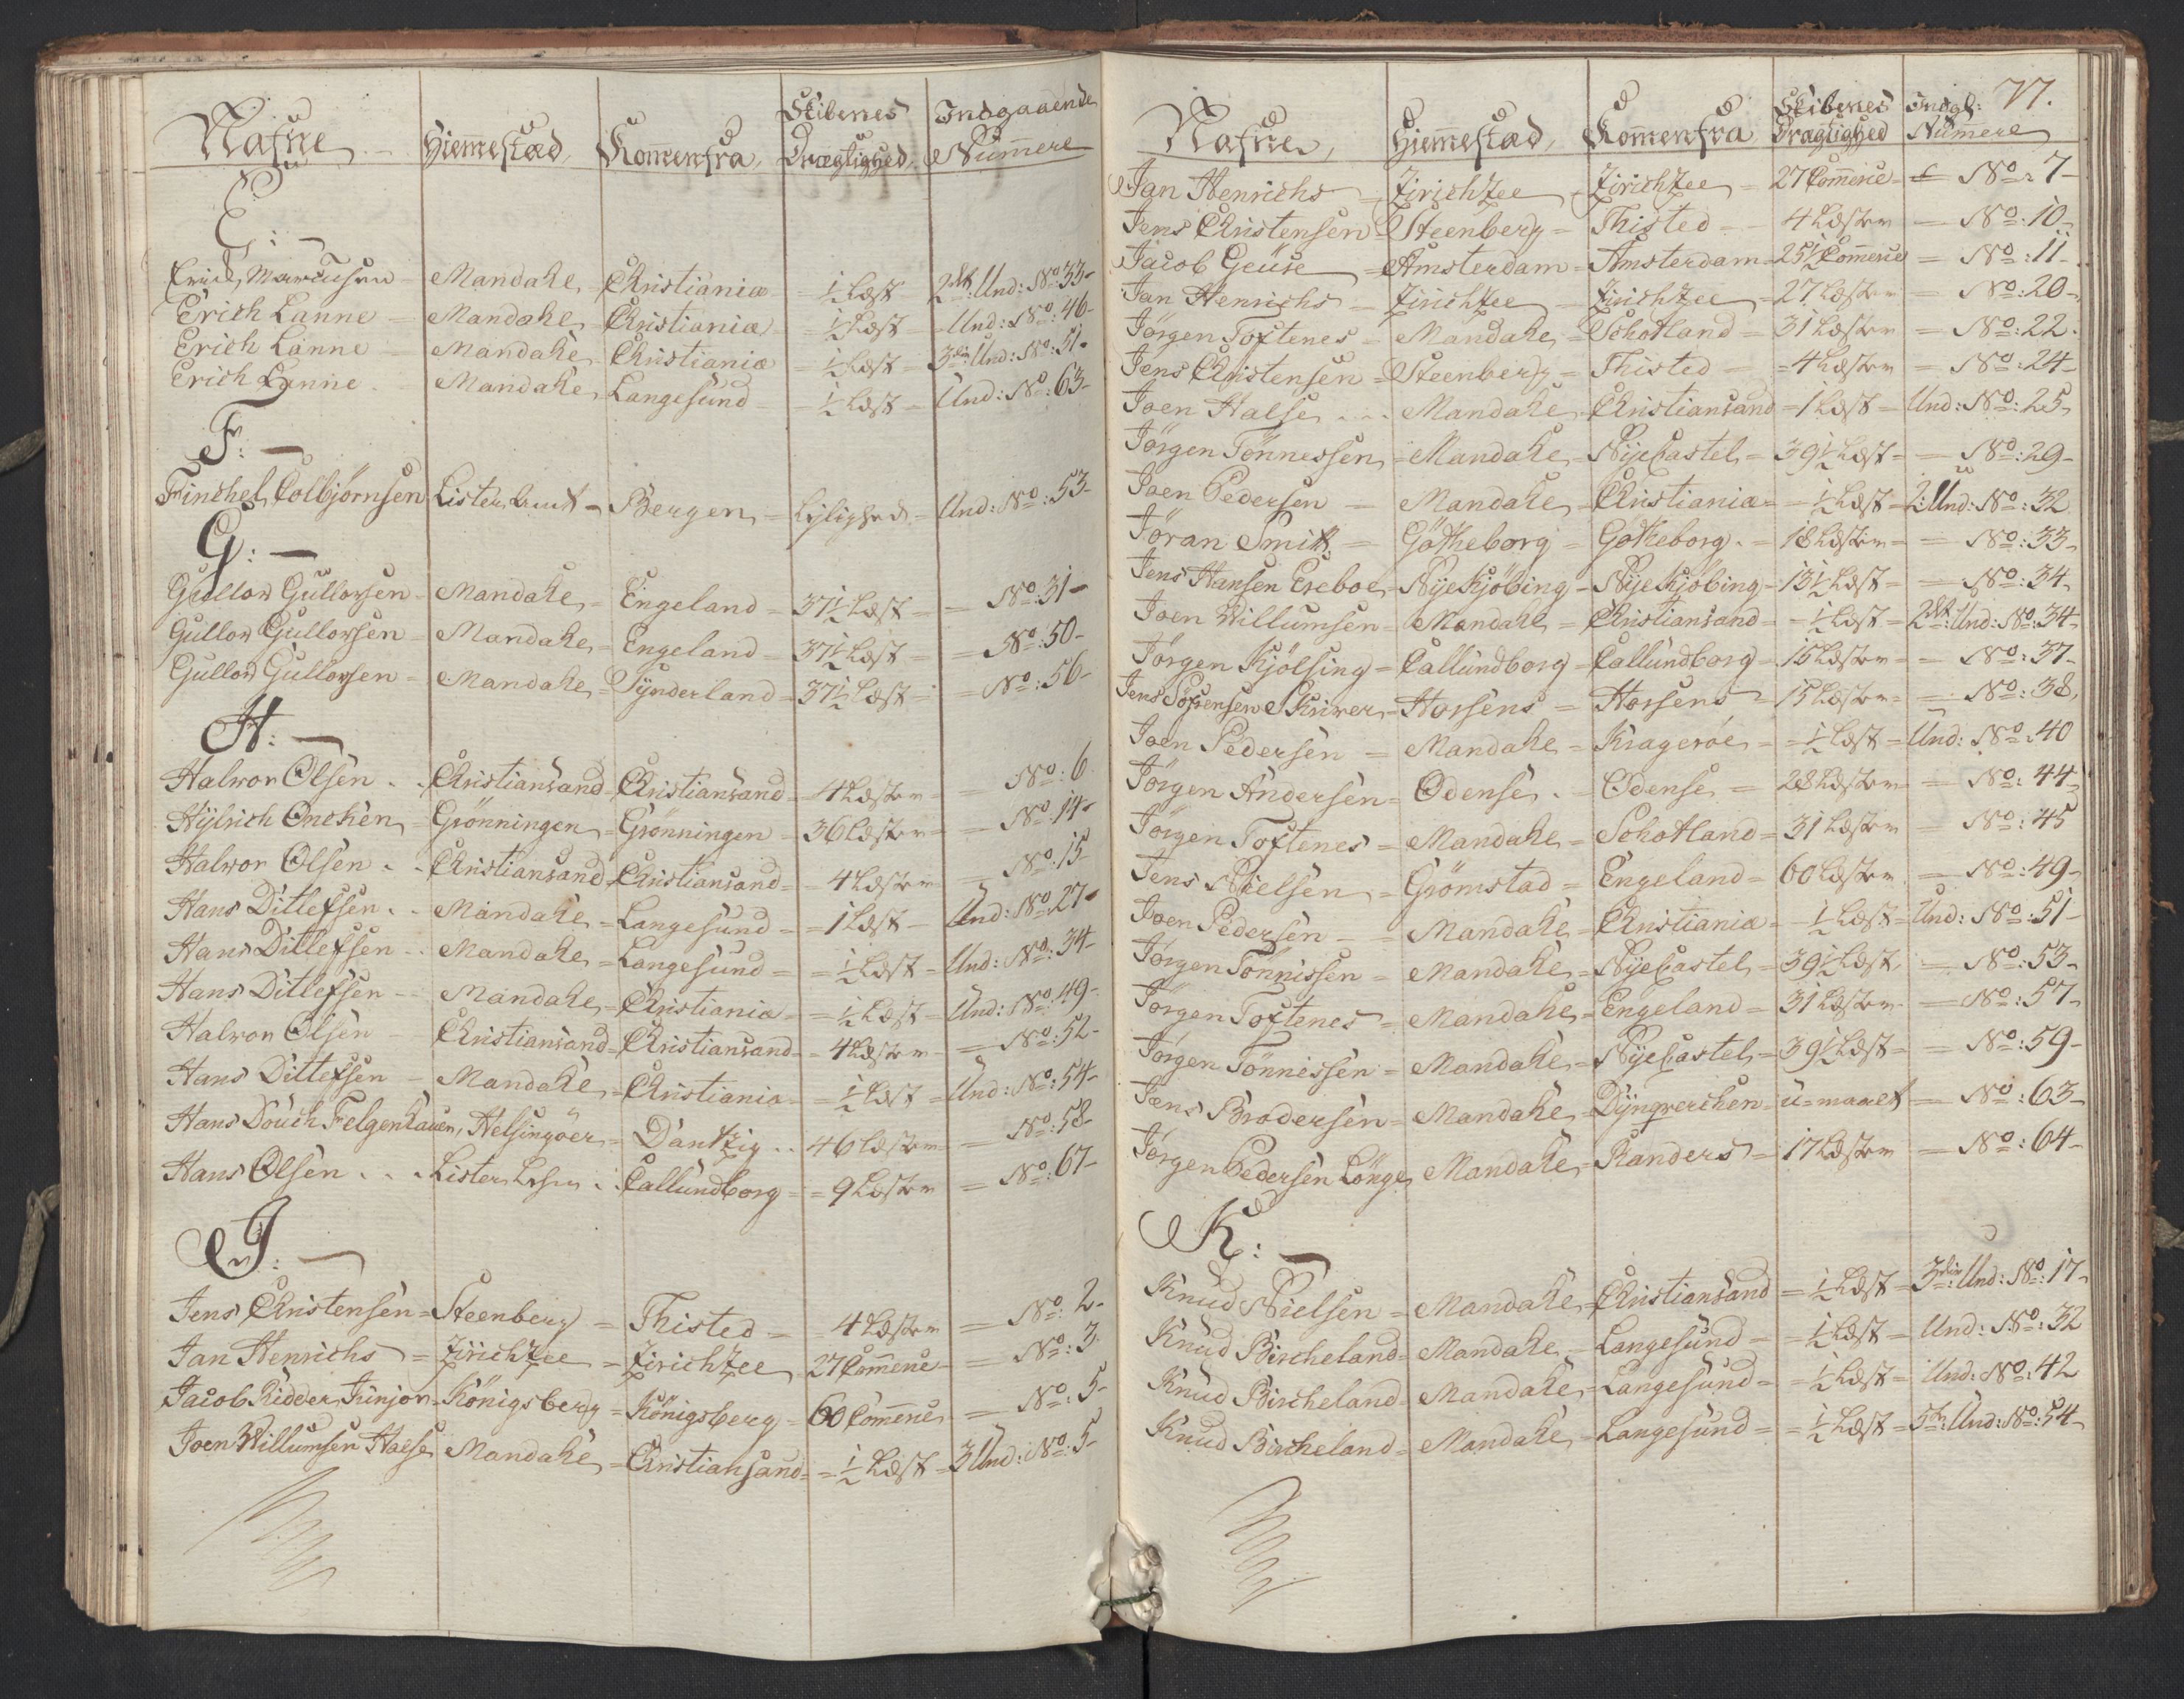 Nafne Hiemestæd, Kommenfra, Skibenes Drægtighed, Indgaaende Nummere
E: —
Erich Marcusen — Mandahl — Christiania — ½ Læst — 2de Und: No: 33 —
Erich Lanne — Mandahl — Christiania — ½ Læst — Und: No: 46 —
Erich Lanne — Mandahl — Christiania — ½ Læst — 3die Und: No: 51 —
Erich Lanne — Mandahl — Langesund — ½ Læst — Und: No: 63 —
F: —
Finchel Colbjørnsen Lister Amt — Bergen — Lejlighed — Und: No: 53 —
G: —
Gullow Gullowsen — Mandahl — Engeland — 37½ Læst — No: 31 —
Gullow Gullowsen — Mandahl — Engeland — 37½ Læst — No: 50 —
Gullow Gullowsen — Mandahl — Synderland — 37½ Læst — No: 56 —
H: —
Halvor Olsen — Christiansand — Christiansand — 4 Læster — No: 6
Hylrich Onchen — Grönningen — Grönningen — 36 Læster — No: 14 —
Halvor Olsen — Christiansand — Christiansand — 4 Læster — No: 15 —
Hans Ditlefsen — Mandahl — Langesund — 1 Læst — Und: No: 27 —
Hans Ditlefsen — Mandahl — Langesund — ½ Læst — Und: No: 34 —
Hans Ditlefsen — Mandahl — Christiania — ½ Læst — Und: No: 49 —
Halvor Olsen — Christiansand — Christiansand — 4 Læster — No: 52 —
Hans Ditlefsen — Mandahl — Christiania — ½ Læst — Und: No: 54 —
Hans Douch Felgenhauer, Helsingöer — Dantzig — 46 Læster — No: 58 —
Hans Olsen — Lister — Callundborg — 9 Læster — No: 67 —
J: —
Jens Christensen — Steenberg — Thisted — 4 Læster — No: 2 —
Jan Henrichs — Zirichzee — Zirichzee 27 Commerce — No: 3
Jacob Ridder Junior — Königsberg — Königsberg — 60 Commerce — No: 5 —
Joen Willumsen Halse Mandahl — Christiansand — ½ Læst — 3 Und: No: 5 —
77.
Nafne, Hiemestæd, Kommenfra Skibenes Drægtighed Indg: Nummere
Jan Henrichs — Zirichzee — Zirichzee — 27 Commerce — No: 7 —
Jens Christensen — Steenberg — Thisted — 4 Læster — No: 10 —
Jacob Geuse — Amsterdam — Amsterdam — 25½ Commerce — No: 11 —
Jan Henrichs — Zirichzee — Zirichzee — 27 Læster — No: 20 —
Jörgen Toftenes — Mandahl — Schotland — 31 Læster — No: 22.
Jens Christensen — Steenberg — Thisted — 4 Læster — No: 24 —
Joen Halse — Mandahl — Christiansand — 1 Læst — Und: No: 25 —
Jörgen Tönnessen — Mandahl — Nyecastel — 39½ Læst — No: 29 —
Joen Pedersen — Mandahl — Christiania — ½ Læst — 2: Und: No: 32
Jöran Smith — Götheborg — Gotheborg — 18 Læster — No: 33 —
Jens Hansen Ereboe — Nyekjöbing — Nyekjöbing — 13½ Læst — No: 34 —
Joen Willumsen — Mandahl — Christiansand — ½ Læst — 2de Und: No: 34 —
Jörgen Kjölsing — Callundborg — Callundborg — 15 Læster — No: 37 —
Jens Sörensen Skriver — Horsens — Horsens — 15 Læster — No: 38 —
Joen Pedersen — Mandahl — Krageröe — ½ Læst — Und: No: 40
Jörgen Andersen — Odense — Odense — 28 Læster — No: 44 —
Jörgen Toftenes — Mandahl — Schotland — 31 Læster — No: 45
Jens Nielsen — Grömstad — Engeland — 60 Læster — No: 49 —
Joen Pedersen — Mandahl — Christiania — ½ Læst — Und: No: 51 —
Jörgen Tönnissen — Mandahl — Nyecastel — 39½ Læst — No: 53 —
Jörgen Toftenes — Mandahl — Engeland — 31 Læster — No: 57 —
Jörgen Tönnissen — Mandahl — Nyecastel — 39½ Læst — No: 59 —
Jens Brodersen — Mandahl — Dyngverchen — u-maalt — No: 63 —
Jörgen Pedersen Lönge Mandahl — Randers — 17 Læster — No: 64 —
K: —
Knud Nielsen — Mandahl — Christiansand — ½ Læst — 3die Und: No: 17 —
Knud Bircheland — Mandahl — Langesund — ½ Læst — Und: No: 32
Knud Bircheland — Mandahl — Langesund — ½ Læst — Und: No: 42
Knud Bircheland — Mandahl — Langesund — ½ Læst — 5te Und: No: 54 —